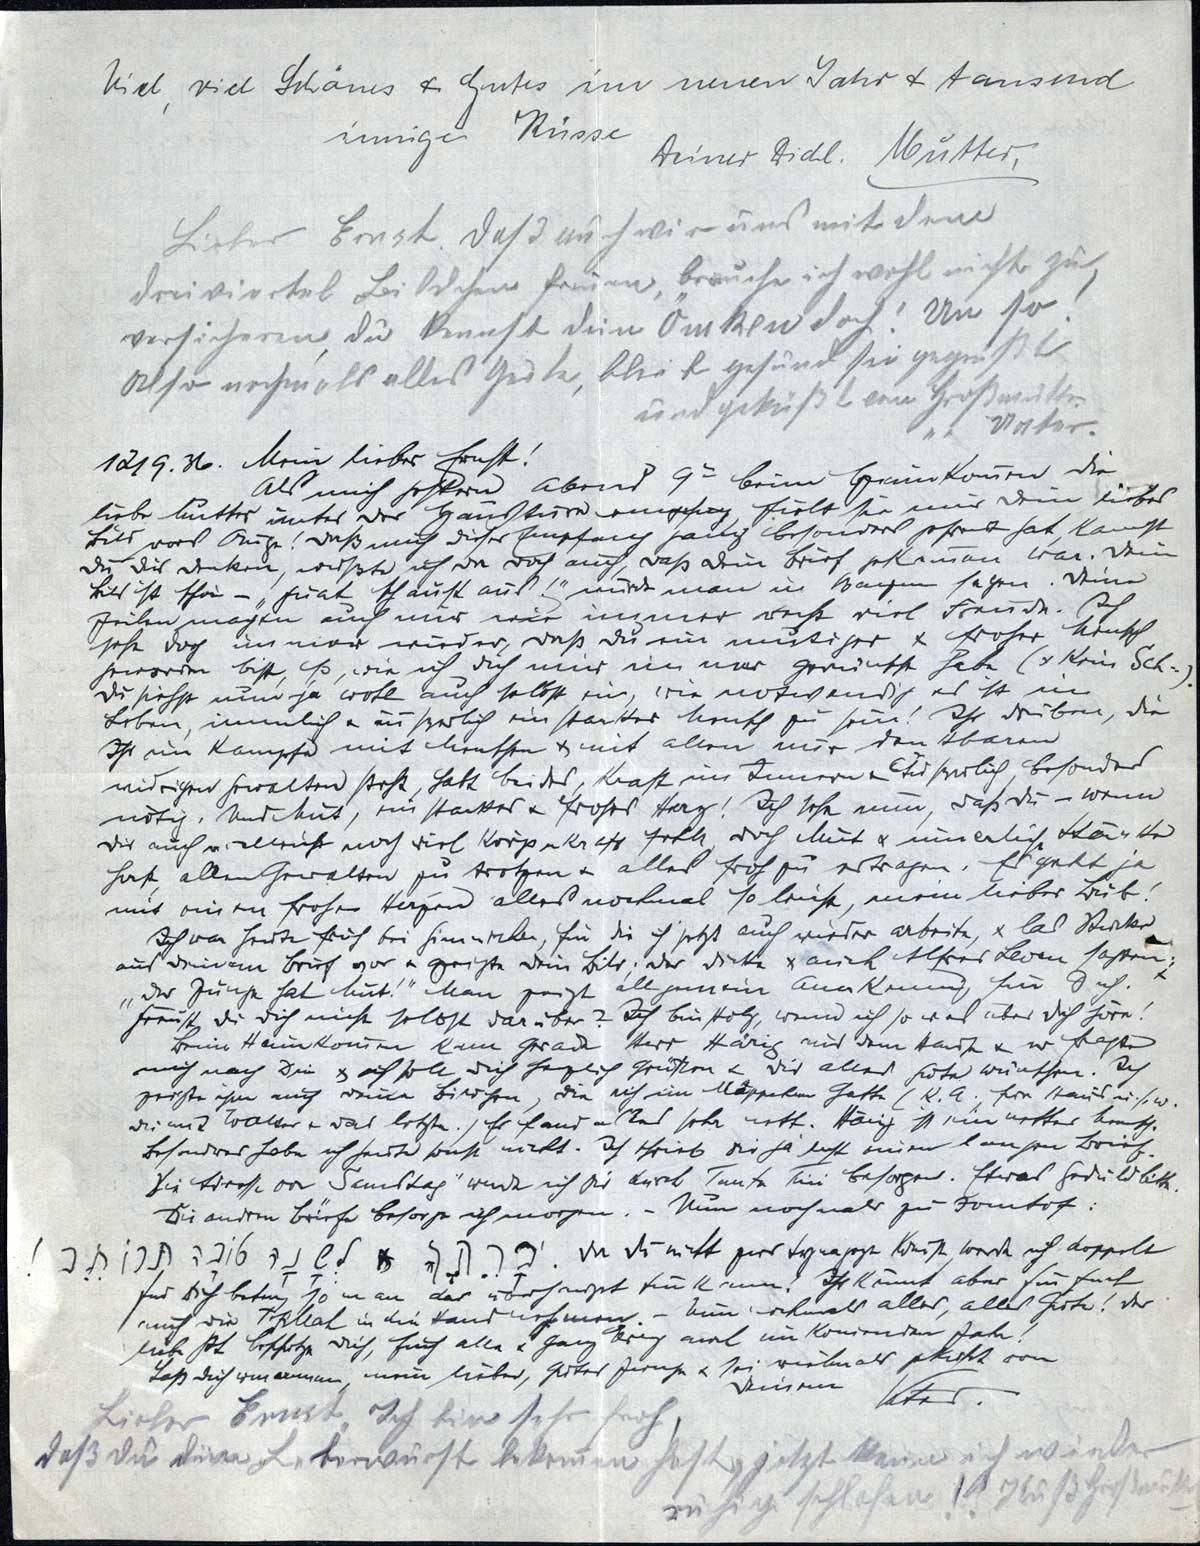 Viel, viel Schönes & Gutes im neuen Jahr & tausend
innige Küsse
Deiner Dichl. Mutter.
Lieber Ernst. Daß auch wir uns mit dem
dreiviertel Bildchen freuen, brauche ich wohl nicht zu
versichern, du kennst dein Ömken doch! Um so!
Also nochmals alles Gute, bleib gesund sei gegrüßt
und geküßt von Großmutter
" " Vater.
12/9.36. Mein lieber Ernst!
Als mich gestern abend 9 beim Heimkommen die
liebe Mutter unter der Haustüre empfing hielt sie mir dein liebes
Bild vors Auge! Daß mich dieser Empfang ganz besonders gefreut hat, kannst
Du Dir denken, wußte ich da doch auch, daß Dein Brief gekommen war. Dein
Bild ist schön – „guat schaust aus!" würde man in Bayern sagen. Deine
Zeilen machen auch mir wie immer recht viel Freude. Ich
sehe doch immer wieder, daß Du ein mutiger & froher Mensch
geworden bist, so, wie ich Dich mir immer gewünscht habe (& kein Sch–).
Du siehst nun ja wohl auch selbst ein, wie notwendig es ist im
Leben, innerlich & äußerlich ein starker Mensch zu sein! Ihr drüben, die
Ihr im Kampfe mit Menschen & mit allen nur denkbaren
niedrigen Gewalten steht, habt beides, Kraft im Innern & äußerlich, besonders
nötig. Und Mut, ein starkes & frohes Herz! Ich sehe nun, daß Du – wenn
Dir auch vielleicht noch viel Körperkraft fehlt, doch Mut & innerliche Stärke
hast, allen Gewalten zu trotzen & alles froh zu ertragen. Es geht ja
mit einem frohen Herzen alles nochmal so leicht, mein lieber Bub!
Ich war heute früh bei, für die ich jetzt auch wieder arbeite, & las
aus Deinem Brief vor & zeigte Dein Bild; der dicke & auch Alfred Leven sagten:
„Der Junge hat Mut!" Man zeigt allgemein Anerkennung für Dich. &
Freust Du Dich nicht selbst darüber? Ich bin stolz, wenn ich so was über Dich höre!
Beim Heimkommen kam gerade Herr Härig aus dem Hause & er fragte
mich nach Dir & ich soll Dich herzlich grüßen & Dir alles Gute wünschen. Ich
zeigte ihm auch Deine Bildchen, die ich im Mäppchen hatte (
Walter & das letzte.) Er fand alles sehr nett. Härig ist ein netter Mensch.
Besonderes habe ich heute sonst nicht. Ich schrieb Dir ja erst einen langen Brief.
Die Adresse von „Samstag" werde ich Dir durch Tante besorgen. Etwas Geduld bitte.
Die andern Briefe besorge ich morgen. – Nun nochmals zum Jomtof:
! לשנה טובה Da Du nicht zur Synagoge kannst, werde ich doppelt
für Dich beten, so man das überhaupt tun kann! Ihr könnt aber für Euch
auch die Tefillah in die Hand nehmen. – Nun nochmals alles, alles Gute! Der
liebe Gt beschütze Dich, Euch alle & ganz Israel im kommenden Jahr!
Laß Dich umarmen, mein lieber, guter Junge & sei vielmals geküßt von
Deinem Vater.
Lieber Ernst. Ich bin sehr froh,
daß du deine Leberwurst bekommen hast, jetzt kann ich wieder
ruhig schlafen!! Kuß Großmutter